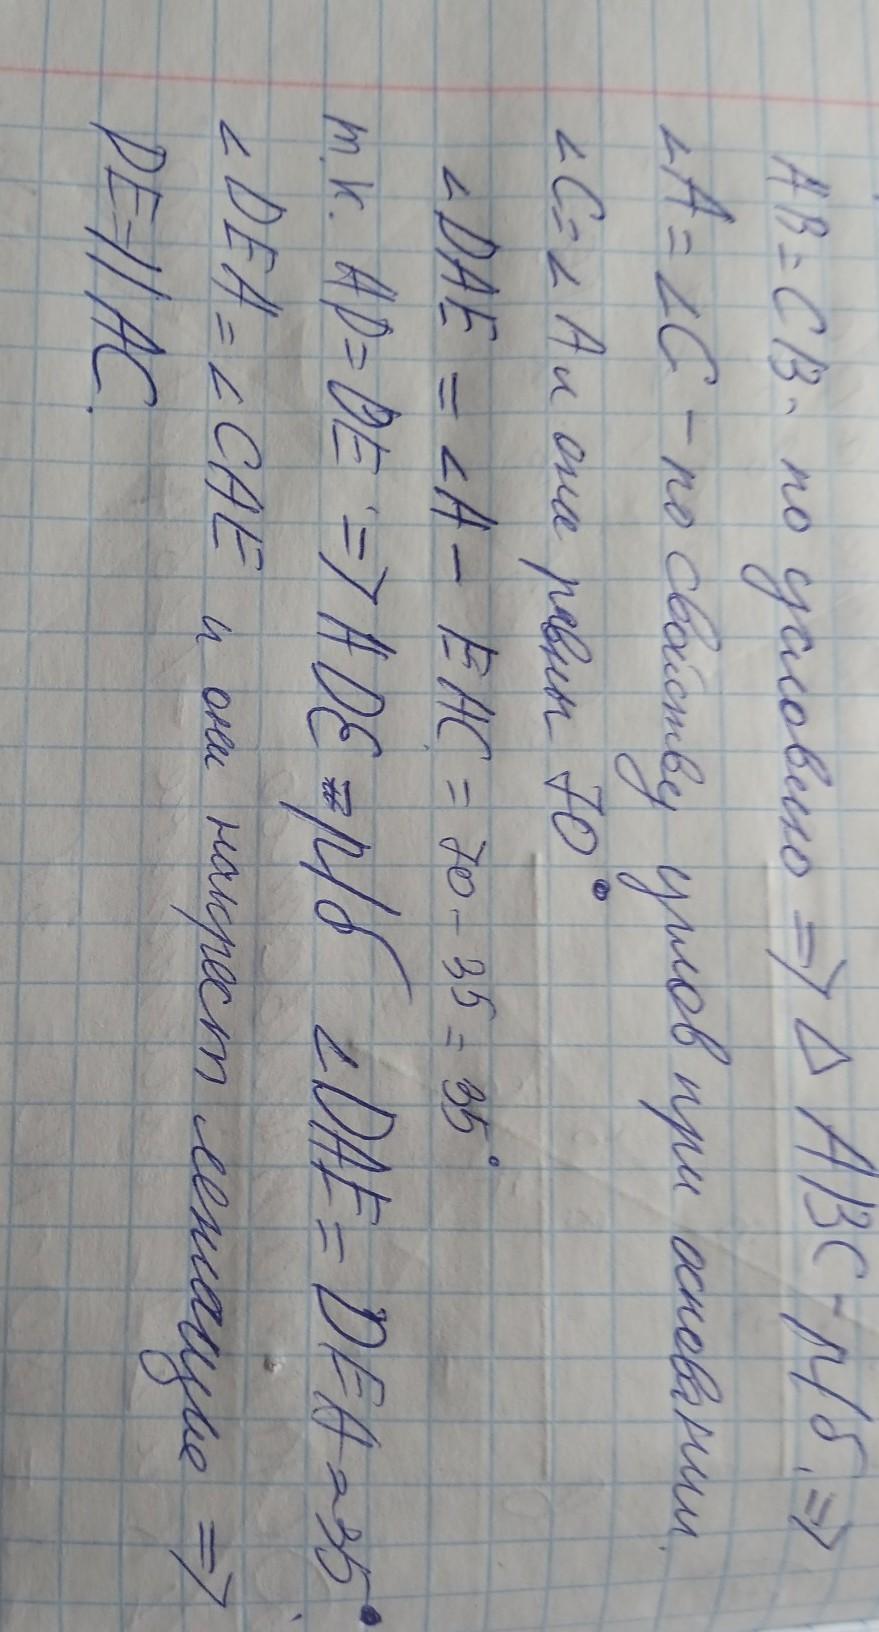 AB=CB - по условию => △ ABC - р/б. =>
∠A = ∠C - по свойству углов при основании.
∠C = ∠A и они равны 70°
∠DAE = ∠A - EAC = 70 - 35 = 35°
т.к. AD = DE => ADE = р/б ∠DAE = DEA = 35°
∠DEA = ∠CAE и они накрест лежащие =>
DE = || AC.